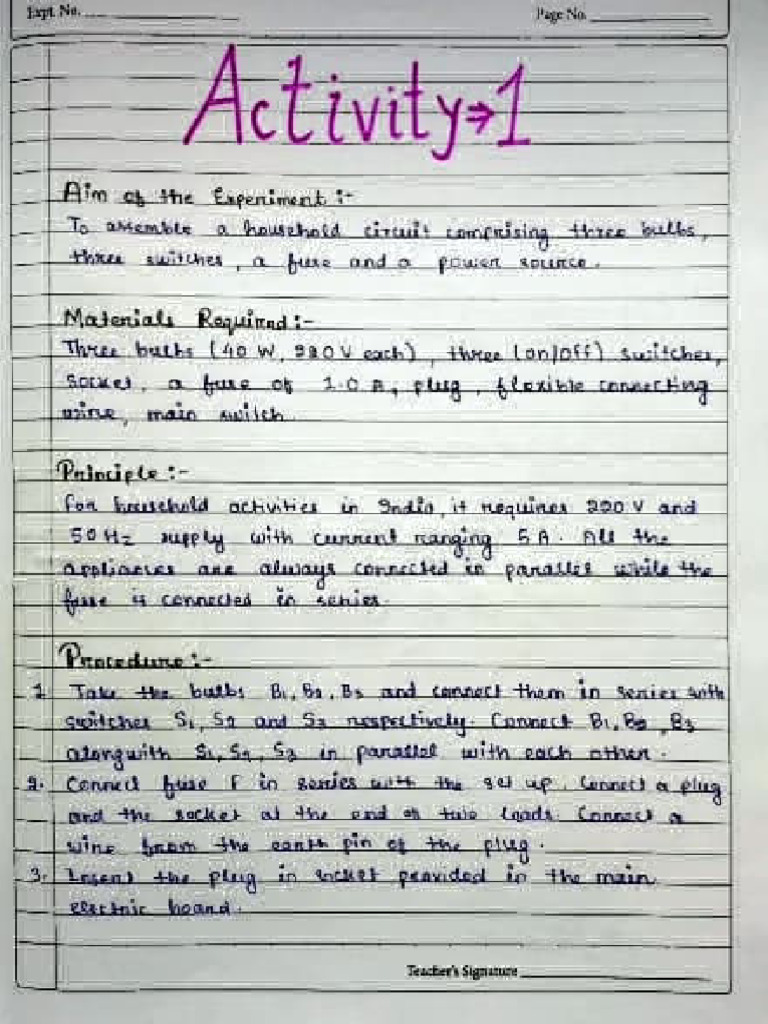 Expt. No.
Page No.
Activity⇒1
Aim of the Experiment :-
To assemble a household circuit comprising three bulbs,
three switches, a fuse and a power source.
Materials Required :-
Three bulbs (40 W, 220 V each), three (on/off) switches,
socket, a fuse of 1.0 A, plug, flexible connecting
wire, main switch.
Principle :-
For household activities in India, it requires 220 V and
50 Hz supply with current ranging 5 A. All the
appliances are always connected in parallel while the
fuse is connected in series.
Procedure :-
1. Take the bulbs B1, B2, B3 and connect them in series with
switches S1, S2 and S3 respectively. Connect B1, B2, B3
alongwith S1, S2, S3 in parallel with each other.
2. Connect fuse F in series with the set up. Connect a plug
and the socket at the end of two leads. Connect a
wire from the earth pin of the plug.
3. Insert the plug in socket provided in the main
electric board.
Teacher's Signature